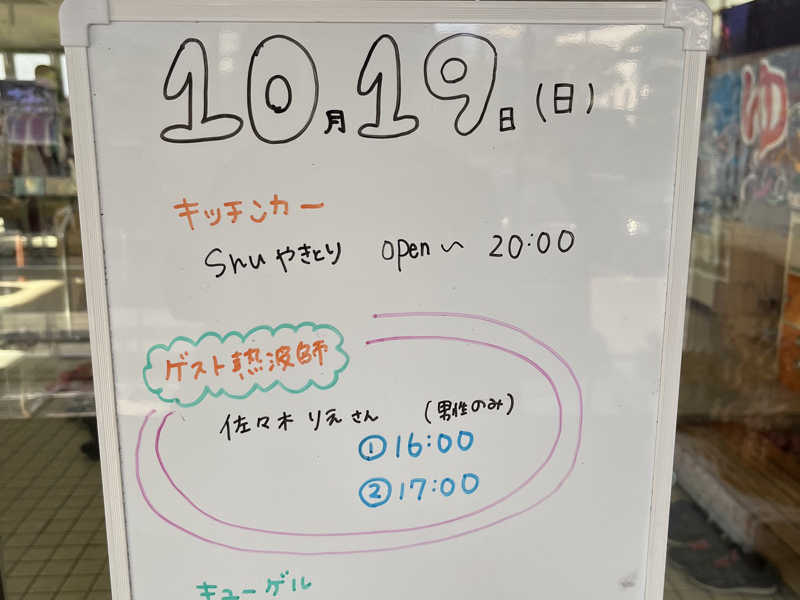 10月19日(日)
キッチンカー
Shu やきとり open 〜 20:00
ゲスト熱波師
佐々木りえさん (男性のみ)
① 16:00
② 17:00
キューゲル
ゆ